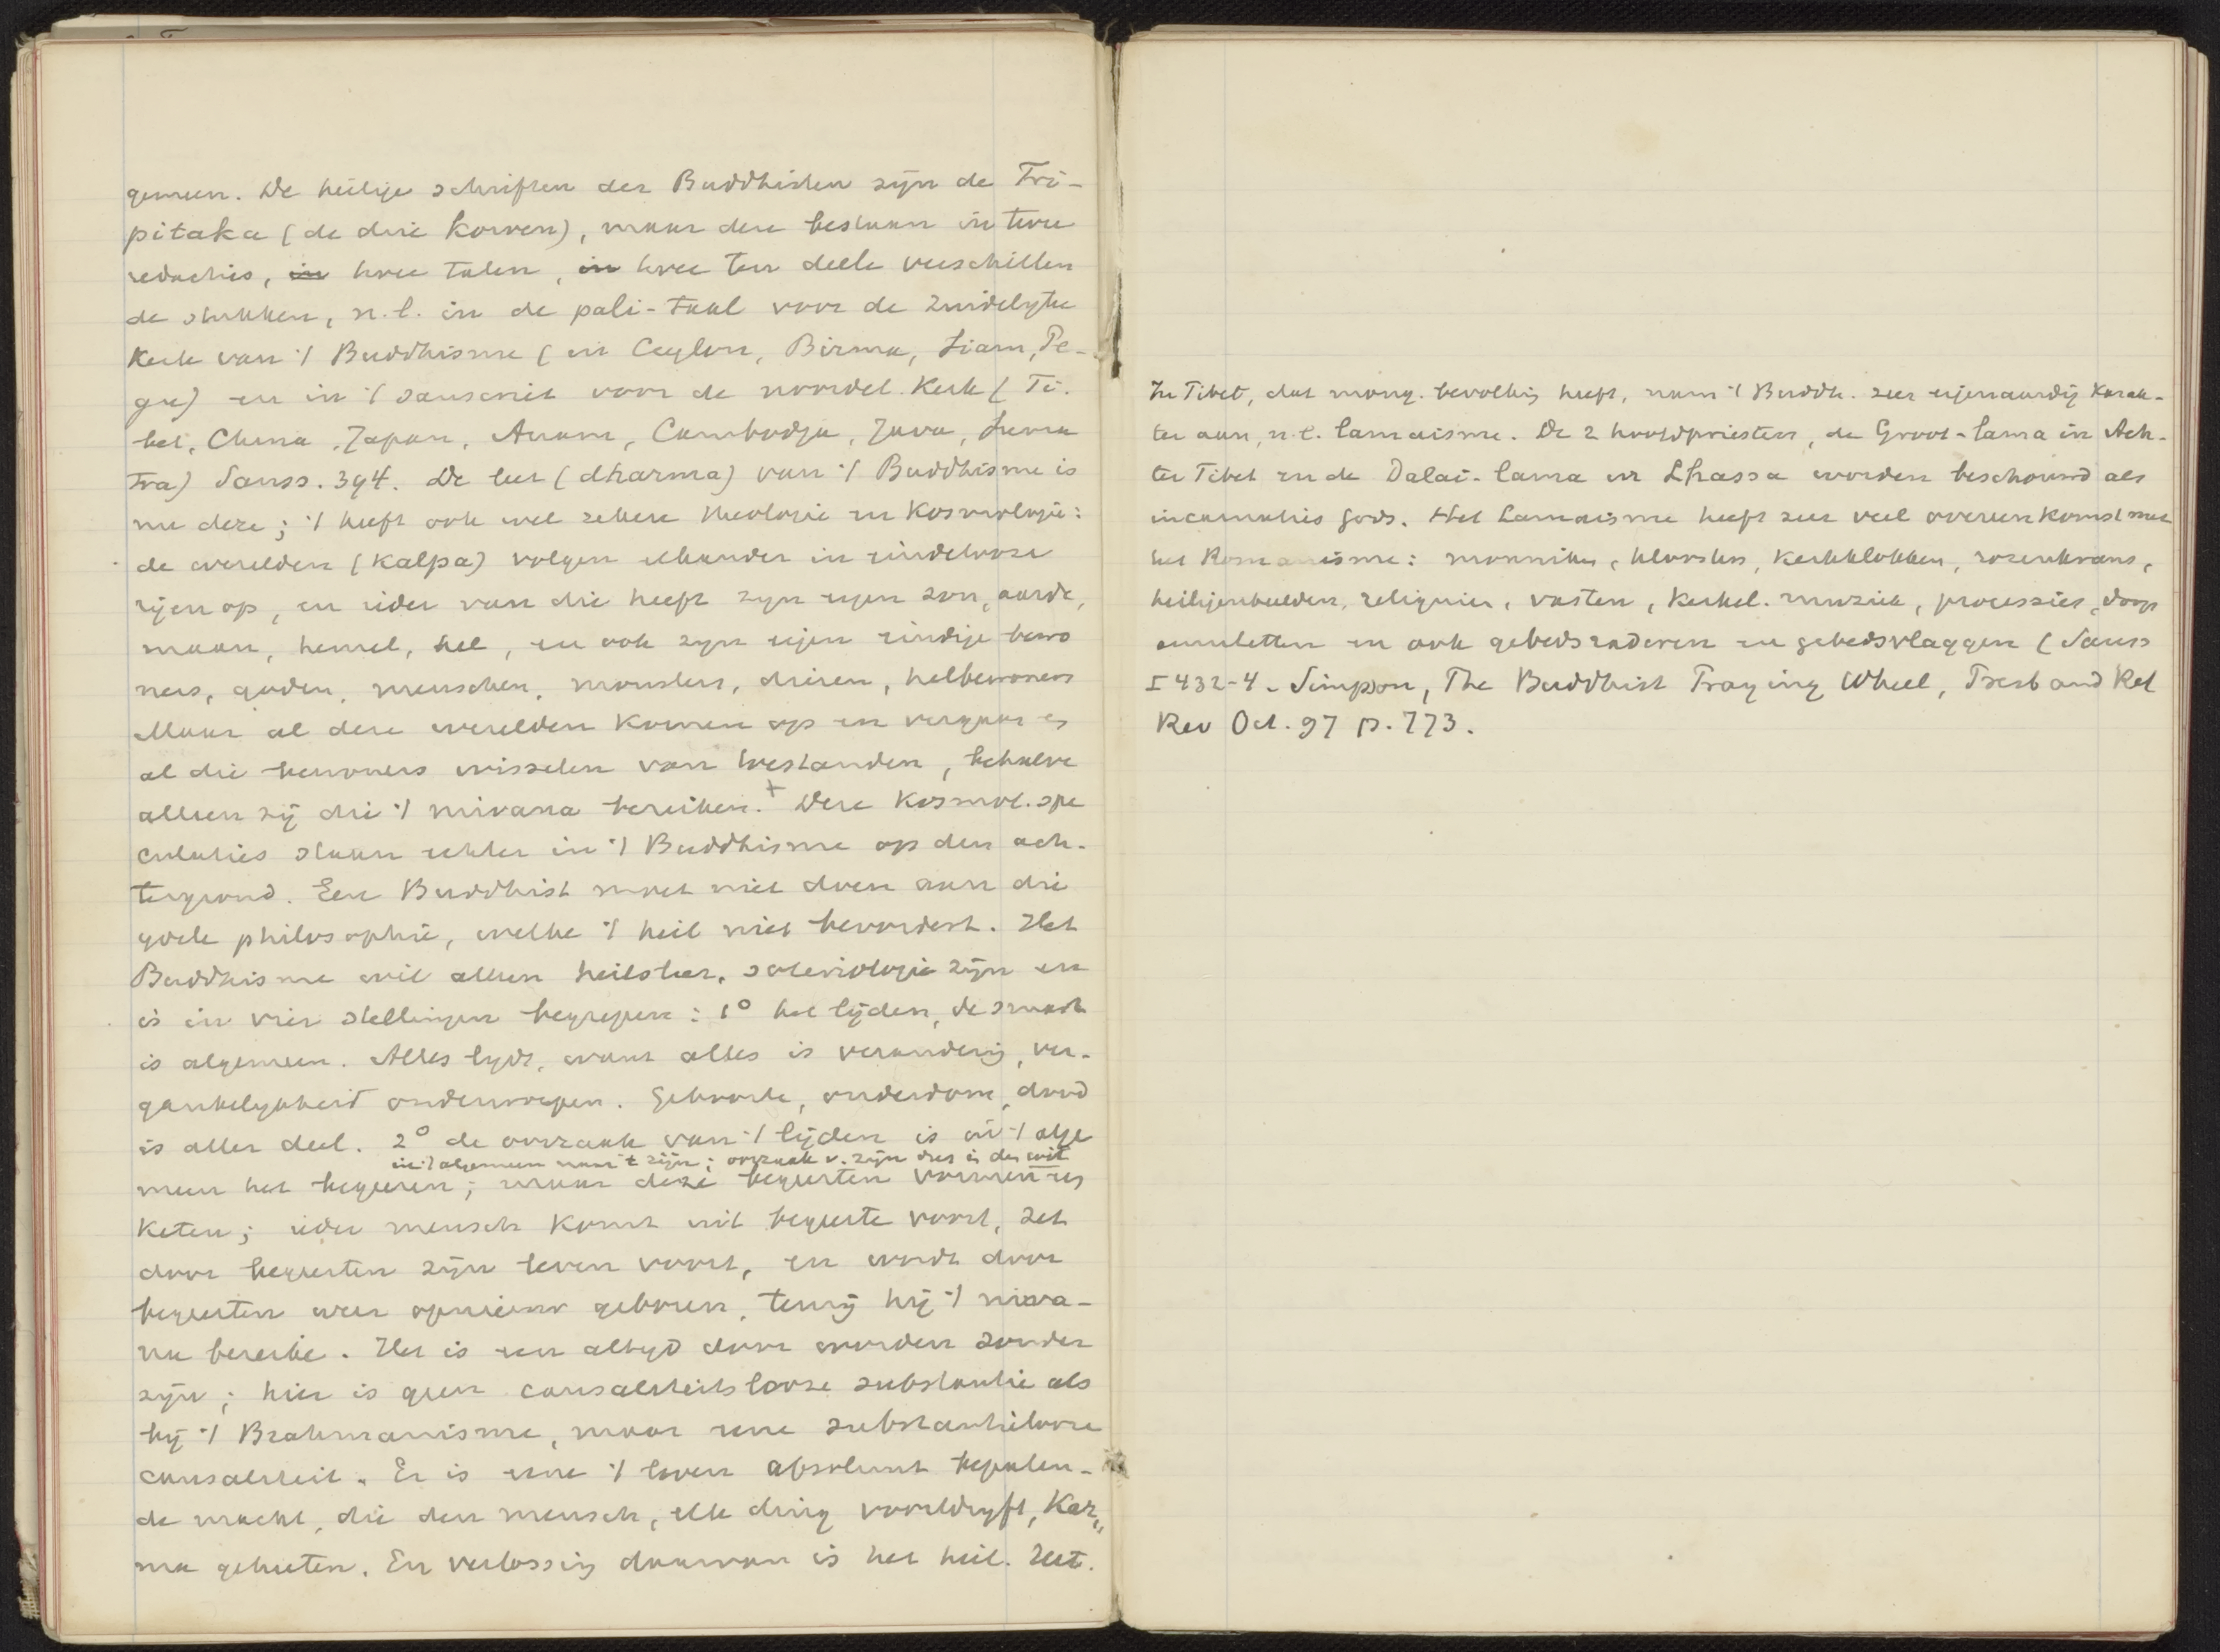 gemeen. De heilige schriften der Buddhisten zijn de Tri-
pitaka (de drie korven), maar deze bestaan in twee
redacties, in twee talen, in twee ten deele verschillen
de stukken, n.l. in de pali-taal voor de zuidelyke
Kerk van 't Buddhisme (in Ceylon, Birma, Siam, Pe-
gu) en in 't sanscrit voor de noordel. Kerk (Ti.
bet, China, Japan, Anam, Cambodja, Java, Suma
tra) Sauss. 394. De leer (dharma) van 't Buddhisme is
nu deze; 't heeft ook wel zekere theologie en Kosmologie:
de werelden (Kalpa) volgen elkander in eindelooze
rijen op, en ieder van die heeft zyn eigen zon, aarde,
maan, hemel, hel, en ook zyn eigen eindige bewo
ners, goden, menschen, monsters, dieren, helbewoners
Maar al deze werelden komen op en vergaan en
al die bewoners wisselen van toestanden, behalve
alleen zij die 't nirvana bereiken.+ Deze Kosmol. spe
culaties staan echter in 't Buddhisme op den ach-
tergrond. Een Buddhist moet niet doen aan die
ydele philosophie, welke 't heil niet bevordert. Het
Buddhisme wil alleen heilsleer, soteriologie zijn en
is in vier stellingen begrepen: 1° het lijden, de smart
is algemeen. Alles lydt, want alles is verandering, ver-
gankelykheid onderworpen. Geboorte, ouderdom, dood
is aller deel. 2° de oorzaak van 't lijden is in 't alge
in 't algemeen naar 't zijn; oorzaak v. zijn dus is de wil
meen het begeeren; maar deze begeerten vormen een
keten; ieder mensch komt uit begeerte voort, zet
door begeerten zijn leven voort, en wordt door
begeerten weer opnieuw geboren, tenzij hij 't nirva-
na bereike. Het is een altyd door worden zonder
zijn; hier is geen causaliteitslooze substantie als
bij 't Brahmanisme, maar eene substantielooze
causaliteit. Er is eene 't leven absoluut bepalen-
de macht, die den mensch, elk ding voortdryft, Kar„
ma geheeten. En verlossing daarvan is het heil. Het.
In Tibet, dat mong. bevolking heeft, nam 't Buddh. zeer eigenaardig karak-
ter aan, n.l. lamaisme. De 2 hoofdpriesters, de Groot-lama in Ach-
ter Tibet en de Dalai-lama in Lhassa worden beschouwd als
incarnaties gods. Het Lamaisme heeft zeer veel overeenkomst met
het Romanisme: monniken, kloosters, kerkklokken, rozenkrans,
heiligenbeelden, reliquien, vasten, kerkel. muziek, processies, doop
amuletten en ook gebedsraderen en gebedsvlaggen (Sauss
I 432-4. Simpson, The Buddhist Praying Wheel, Presb and Ref
Rev Oct. 97 p. 773.